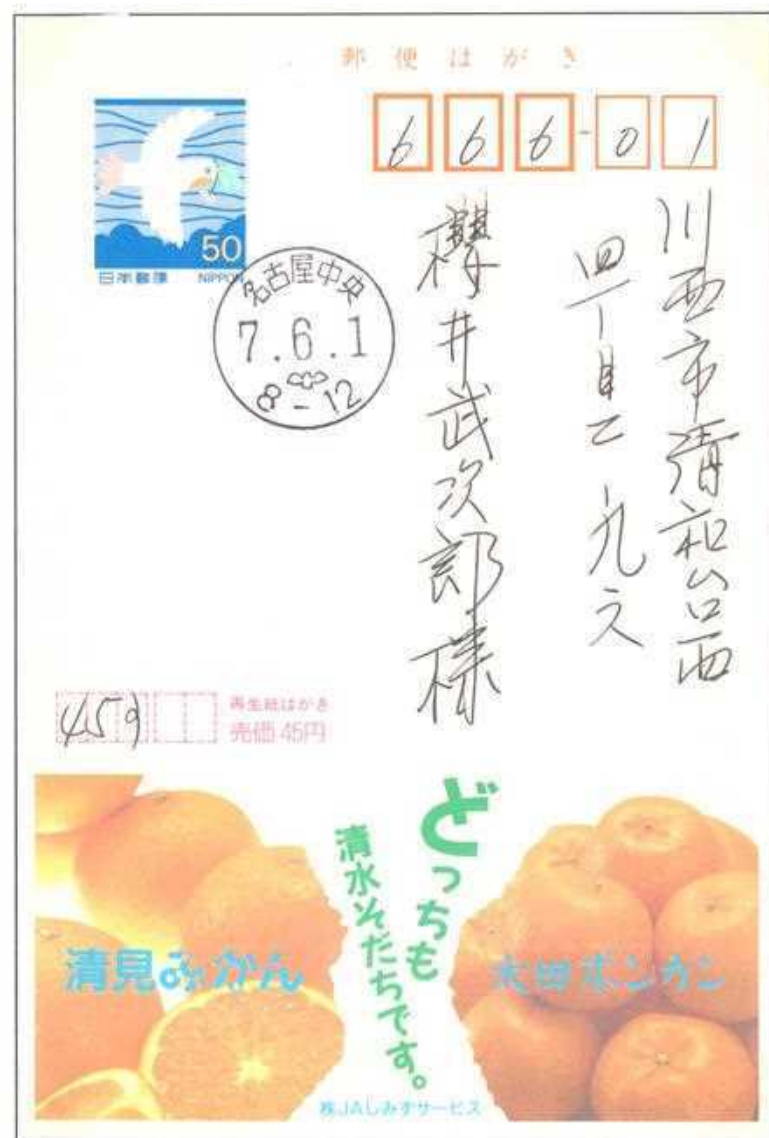 郵便はがき
50
日本郵便 NIPPON
666-01
名古屋中央
7.6.1
8-12
川西市清和台西
四丁目二ノ九
櫻井武次郎様
459
再生紙はがき
売価45円
どっちも
清水そだちです。
清見みかん
太田ポンカン
㈱JAしみずサービス